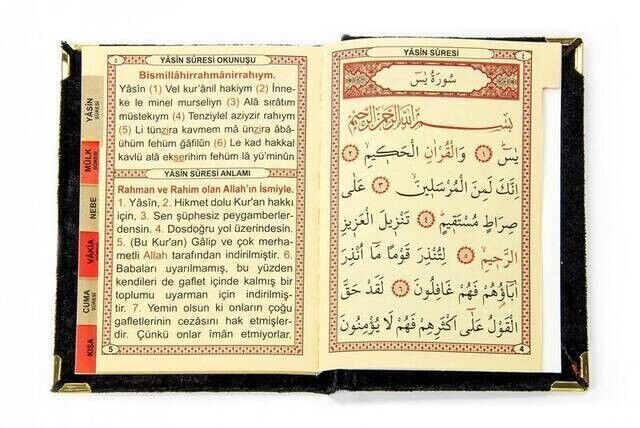 YÂSÎN SÛRESİ OKUNUŞU
Bismillâhirrahmânirrahıym.
Yâsîn (1) Vel kur'ânil hakiym (2) İnne-
ke le minel murseliyn (3) Alâ sırâtım
müstekıym (4) Tenziylel aziyzir rahıym
(5) Li tünzira kavmem mâ ünzira âbâ-
ühüm fehüm ğâfilûn (6) Le kad hakkal
kavlü alâ ekserihim fehüm lâ yü'minûn
YÂSÎN SÛRESİ ANLAMI
Rahman ve Rahim olan Allah'ın İsmiyle.
1. Yâsîn, 2. Hikmet dolu Kur'an hakkı
için, 3. Sen şüphesiz peygamberler-
densin. 4. Dosdoğru yol üzerindesin.
5. (Bu Kur'an) Gâlip ve çok merha-
metli Allah tarafından indirilmiştir. 6.
Babaları uyarılmamış, bu yüzden
kendileri de gaflet içinde kalmış bir
toplumu uyarman için indirilmiş-
tir. 7. Yemin olsun ki onların çoğu
gafletlerinin cezasını hak etmişler-
dir. Çünkü onlar îman etmiyorlar.
5
YÂSÎN SÛRESİ
MÜLK SÛRESİ
NEBE
VÂKIA SÛRESİ
CUMA SÛRESİ
KISA
YÂSÎN SÛRESİ
٤
سُورَةُ يٰسٓ
بِسْمِ اللّٰهِ الرَّحْمٰنِ الرَّحِيمِ
يٰسٓ ﴿١﴾ وَالْقُرْاٰنِ الْحَكِيمِ ﴿٢﴾
اِنَّكَ لَمِنَ الْمُرْسَلِينَ ﴿٣﴾ عَلٰى
صِرَاطٍ مُسْتَقِيمٍ ﴿٤﴾ تَنْزِيلَ الْعَزِيزِ
الرَّحِيمِ ﴿٥﴾ لِتُنْذِرَ قَوْمًا مَٓا اُنْذِرَ
اٰبَٓاؤُهُمْ فَهُمْ غَافِلُونَ ﴿٦﴾ لَقَدْ حَقَّ
الْقَوْلُ عَلٰٓى اَكْثَرِهِمْ فَهُمْ لَا يُؤْمِنُونَ
4